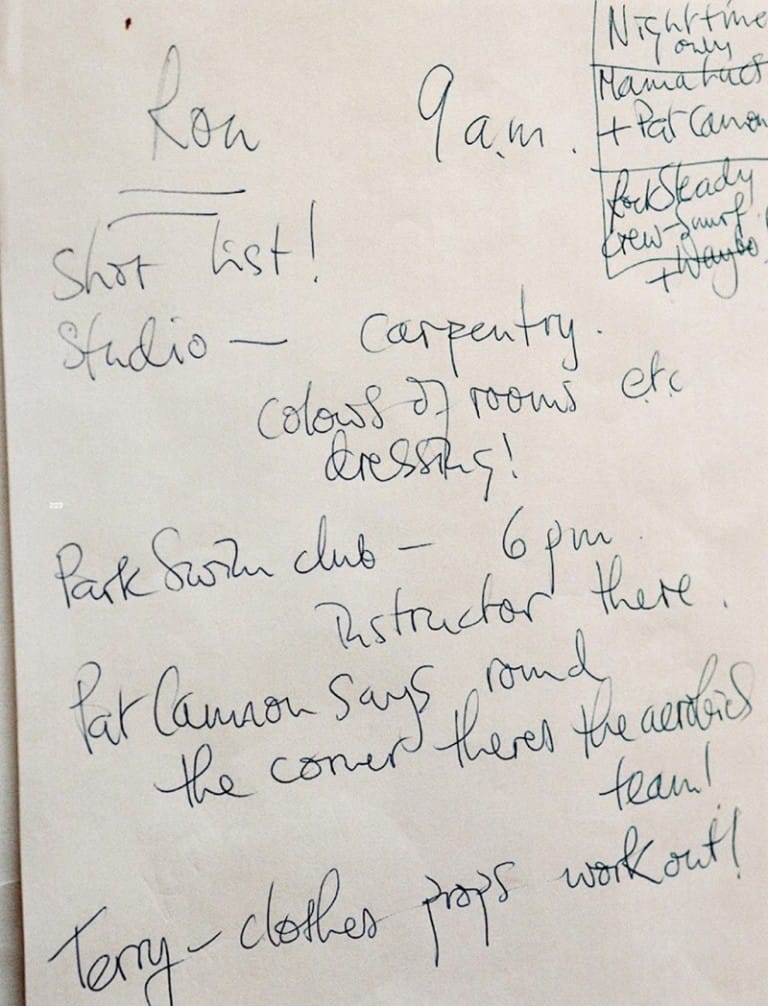 Ron
9 a.m.
Nighttime
only
Mama
+ Pat Cannon
RockSteady
Crew-
+
Shot list!
Studio — Carpentry.
Colours of rooms etc
dressing!
Park Swim club — 6 pm.
Instructor there.
Pat Cannon says round
the corner theres the aerobics
team!
Terry - clothes props workout!